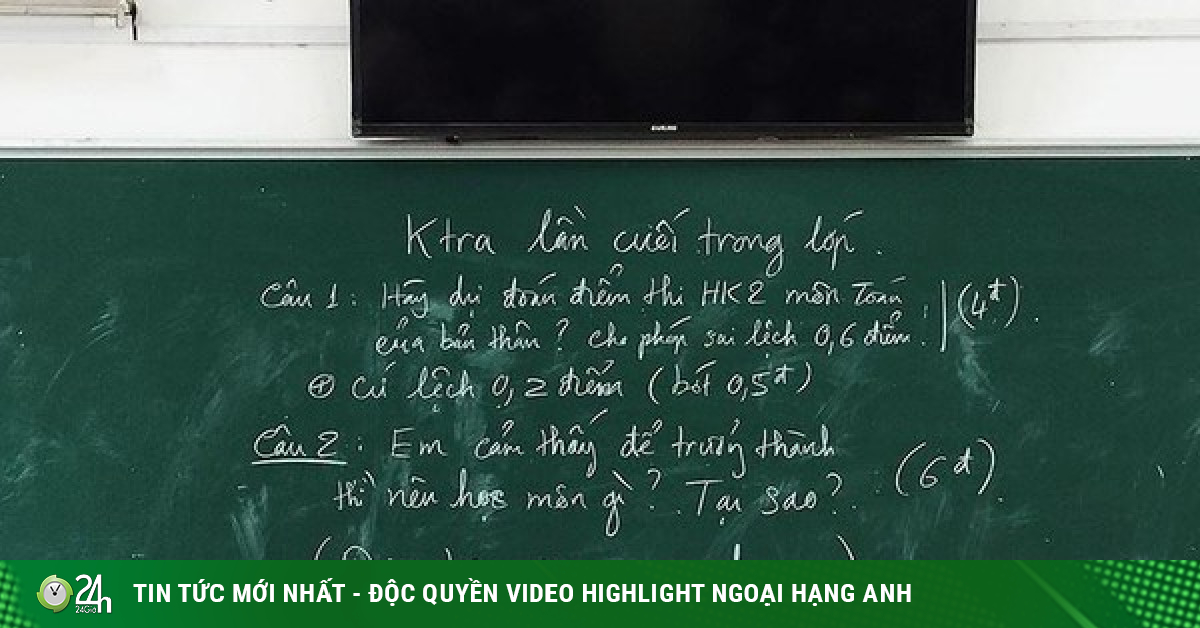 SAMSUNG
Ktra lần cuối trong lớp.
Câu 1: Hãy dự đoán điểm thi HK2 môn Toán
của bản thân? cho phép sai lệch 0,6 điểm. (4đ).
⊕ Cứ lệch 0,2 điểm (bớt 0,5đ)
Câu 2: Em cảm thấy để trưởng thành
thì nên học môn gì? Tại sao? (6đ).
24h
24Giờ
TIN TỨC MỚI NHẤT - ĐỘC QUYỀN VIDEO HIGHLIGHT NGOẠI HẠNG ANH